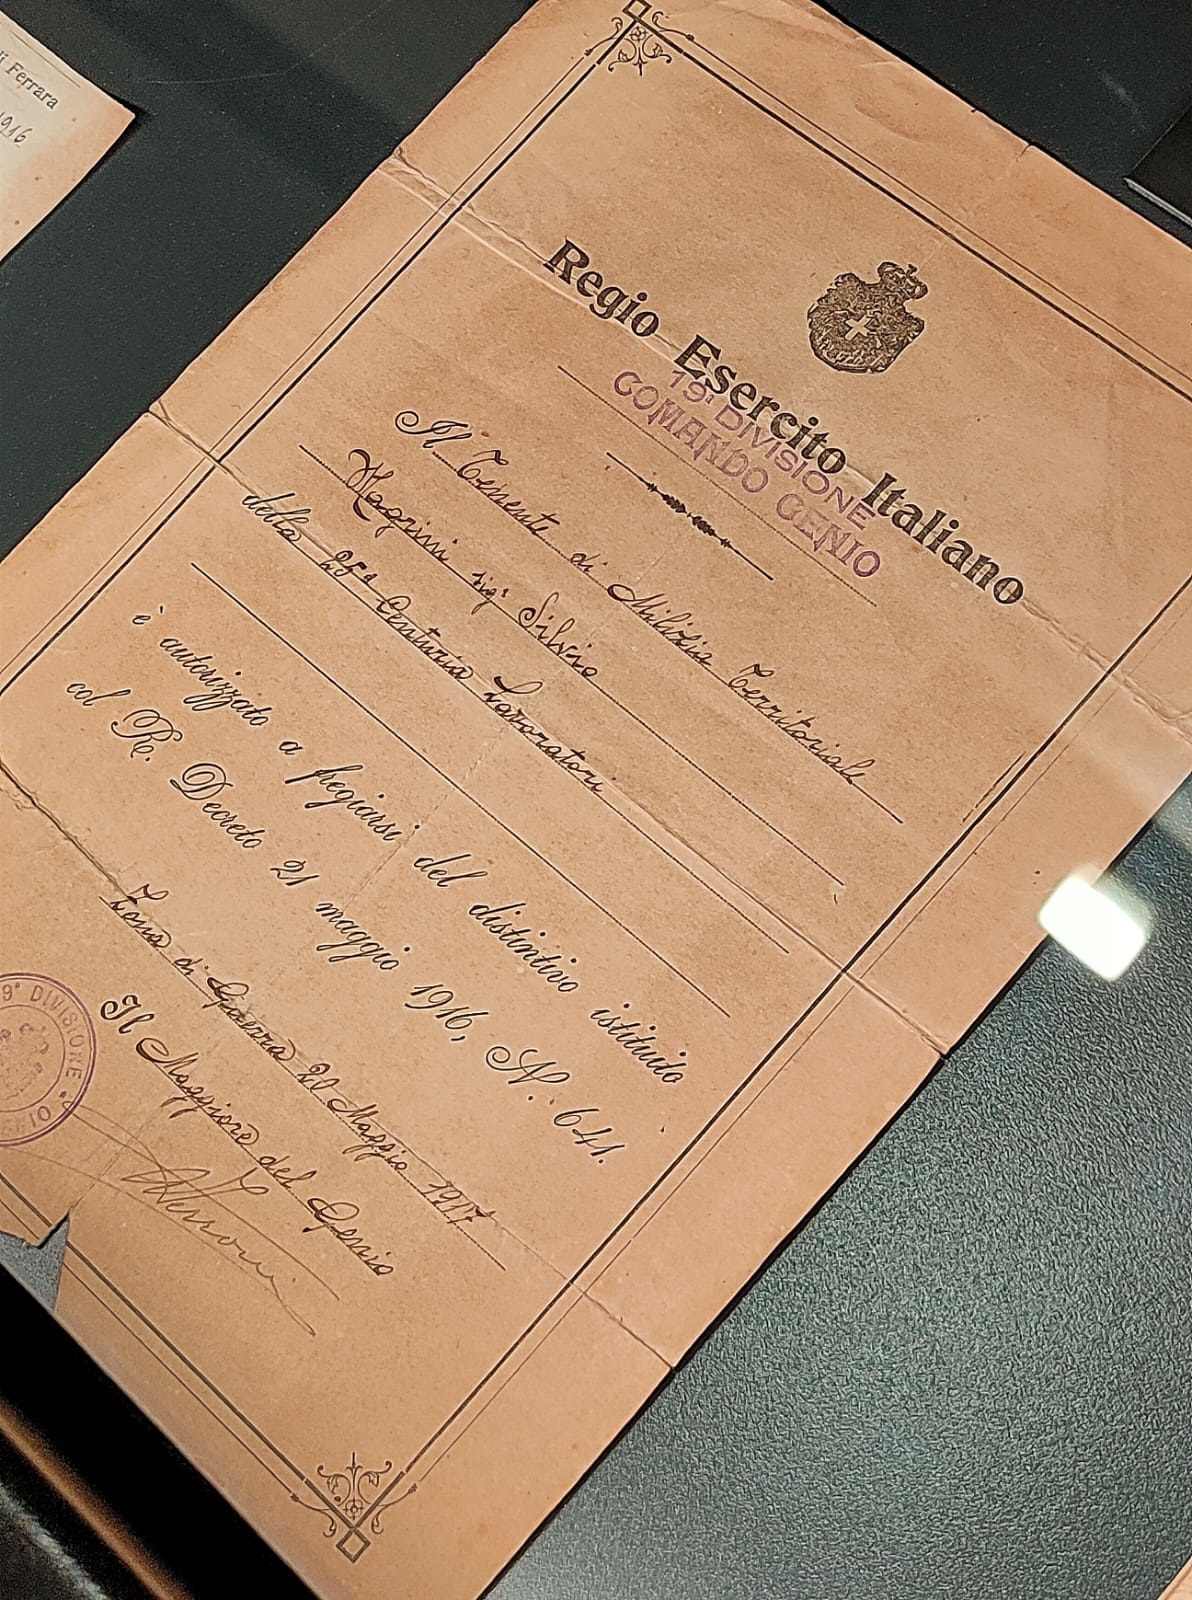 di Ferrara
1916
Regio Esercito Italiano
19ª DIVISIONE
COMANDO GENIO
Il Tenente di Milizia Territoriale
Magrini sigr Silvio
della 25ª Centuria Lavoratori
è autorizzato a fregiarsi del distintivo istituito
col R. Decreto 21 maggio 1916, N. 641.
Zona di Guerra 21 Maggio 1917
Il Maggiore del Genio
9ª DIVISIONE